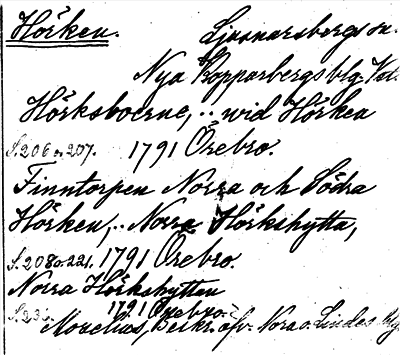 Hörken. Ljusnarsbergs sn.
Nya Kopparbergs blg. Vstl.
Hörksboerne, .. wid Hörken
s. 206 o. 207. 1791 Örebro.
Finntorpen Norra och Södra
Hörken, .. Norra Hörkshytta,
s. 208 o. 221. 1791 Örebro.
Norra Hörkshyttan
s. 23 1791 Örebro.
Morelius, Beskr. öfv. Nora o. Lindes blg